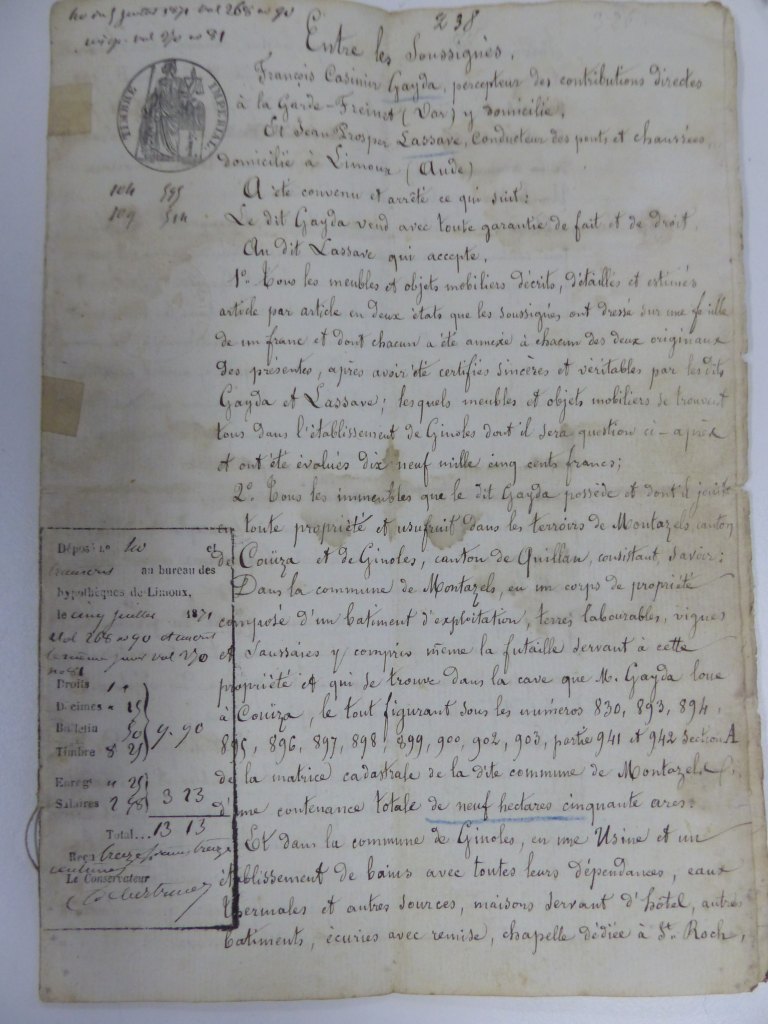 5 juillet 1871 vol 268 no 90
vol 270 no 81
238
Entre les Soussignés,
François Casimir Gayda, percepteur des contributions directes
à la Garde-Freinet (Var) y domicilié,
Et Jean Prosper Lassave, Conducteur des ponts et chaussées,
domicilié à Limoux (Aude)
TIMBRE IMPERIAL
104 595
109 514
A été convenu et arrêté ce qui suit:
Le dit Gayda vend avec toute garantie de fait et de droit
Au dit Lassave qui accepte,
1º. Tous les meubles et objets mobiliers décrits, détaillés et estimés
article par article en deux états que les soussignés ont dressé sur une feuille
de un franc et dont chacun a été annexé à chacun des deux originaux
des présentes, après avoir été certifiés sincères et véritables par les dits
Gayda et Lassave; lesquels meubles et objets mobiliers se trouvent
tous dans l'établissement de Ginoles dont il sera question ci-après
et ont été évalués dix neuf mille cinq cents francs;
2º. Tous les immeubles que le dit Gayda possède et dont il jouit
en toute propriété et usufruit dans les terroirs de Montazels, canton
de Couïza et de Ginoles, canton de Quillan, consistant savoir:
Dans la commune de Montazels, en un corps de propriété
composé d'un batiment d'exploitation, terres labourables, vignes
et Saussaies y compris même la futaille servant à cette
propriété et qui se trouve dans la cave que M. Gayda loue
à Couïza, le tout figurant sous les numéros 830, 893, 894,
895, 896, 897, 898, 899, 900, 902, 903, partie 941 et 942 Section A
de la matrice cadastrale de la dite commune de Montazels
d'une contenance totale de neuf hectares cinquante ares.
Et dans la commune de Ginoles, en une Usine et un
établissement de bains avec toutes leurs dépendances, eaux
thermales et autres sources, maisons servant d'hôtel, autres
batiments, écuries avec remise, chapelle dédiée à St. Roch,
Déposé no et
au bureau des
hypothèques de Limoux,
le cinq juillet 1871
vol 268 no 90 et
vol 270
no 81
Droits 1 "
Décimes " 15
Bulletin 50
Timbre 8 25
9.90
Enreg " 25
Salaires 2 98
3 23
Total... 13 13
Reçu treize francs treize
centimes
Le Conservateur